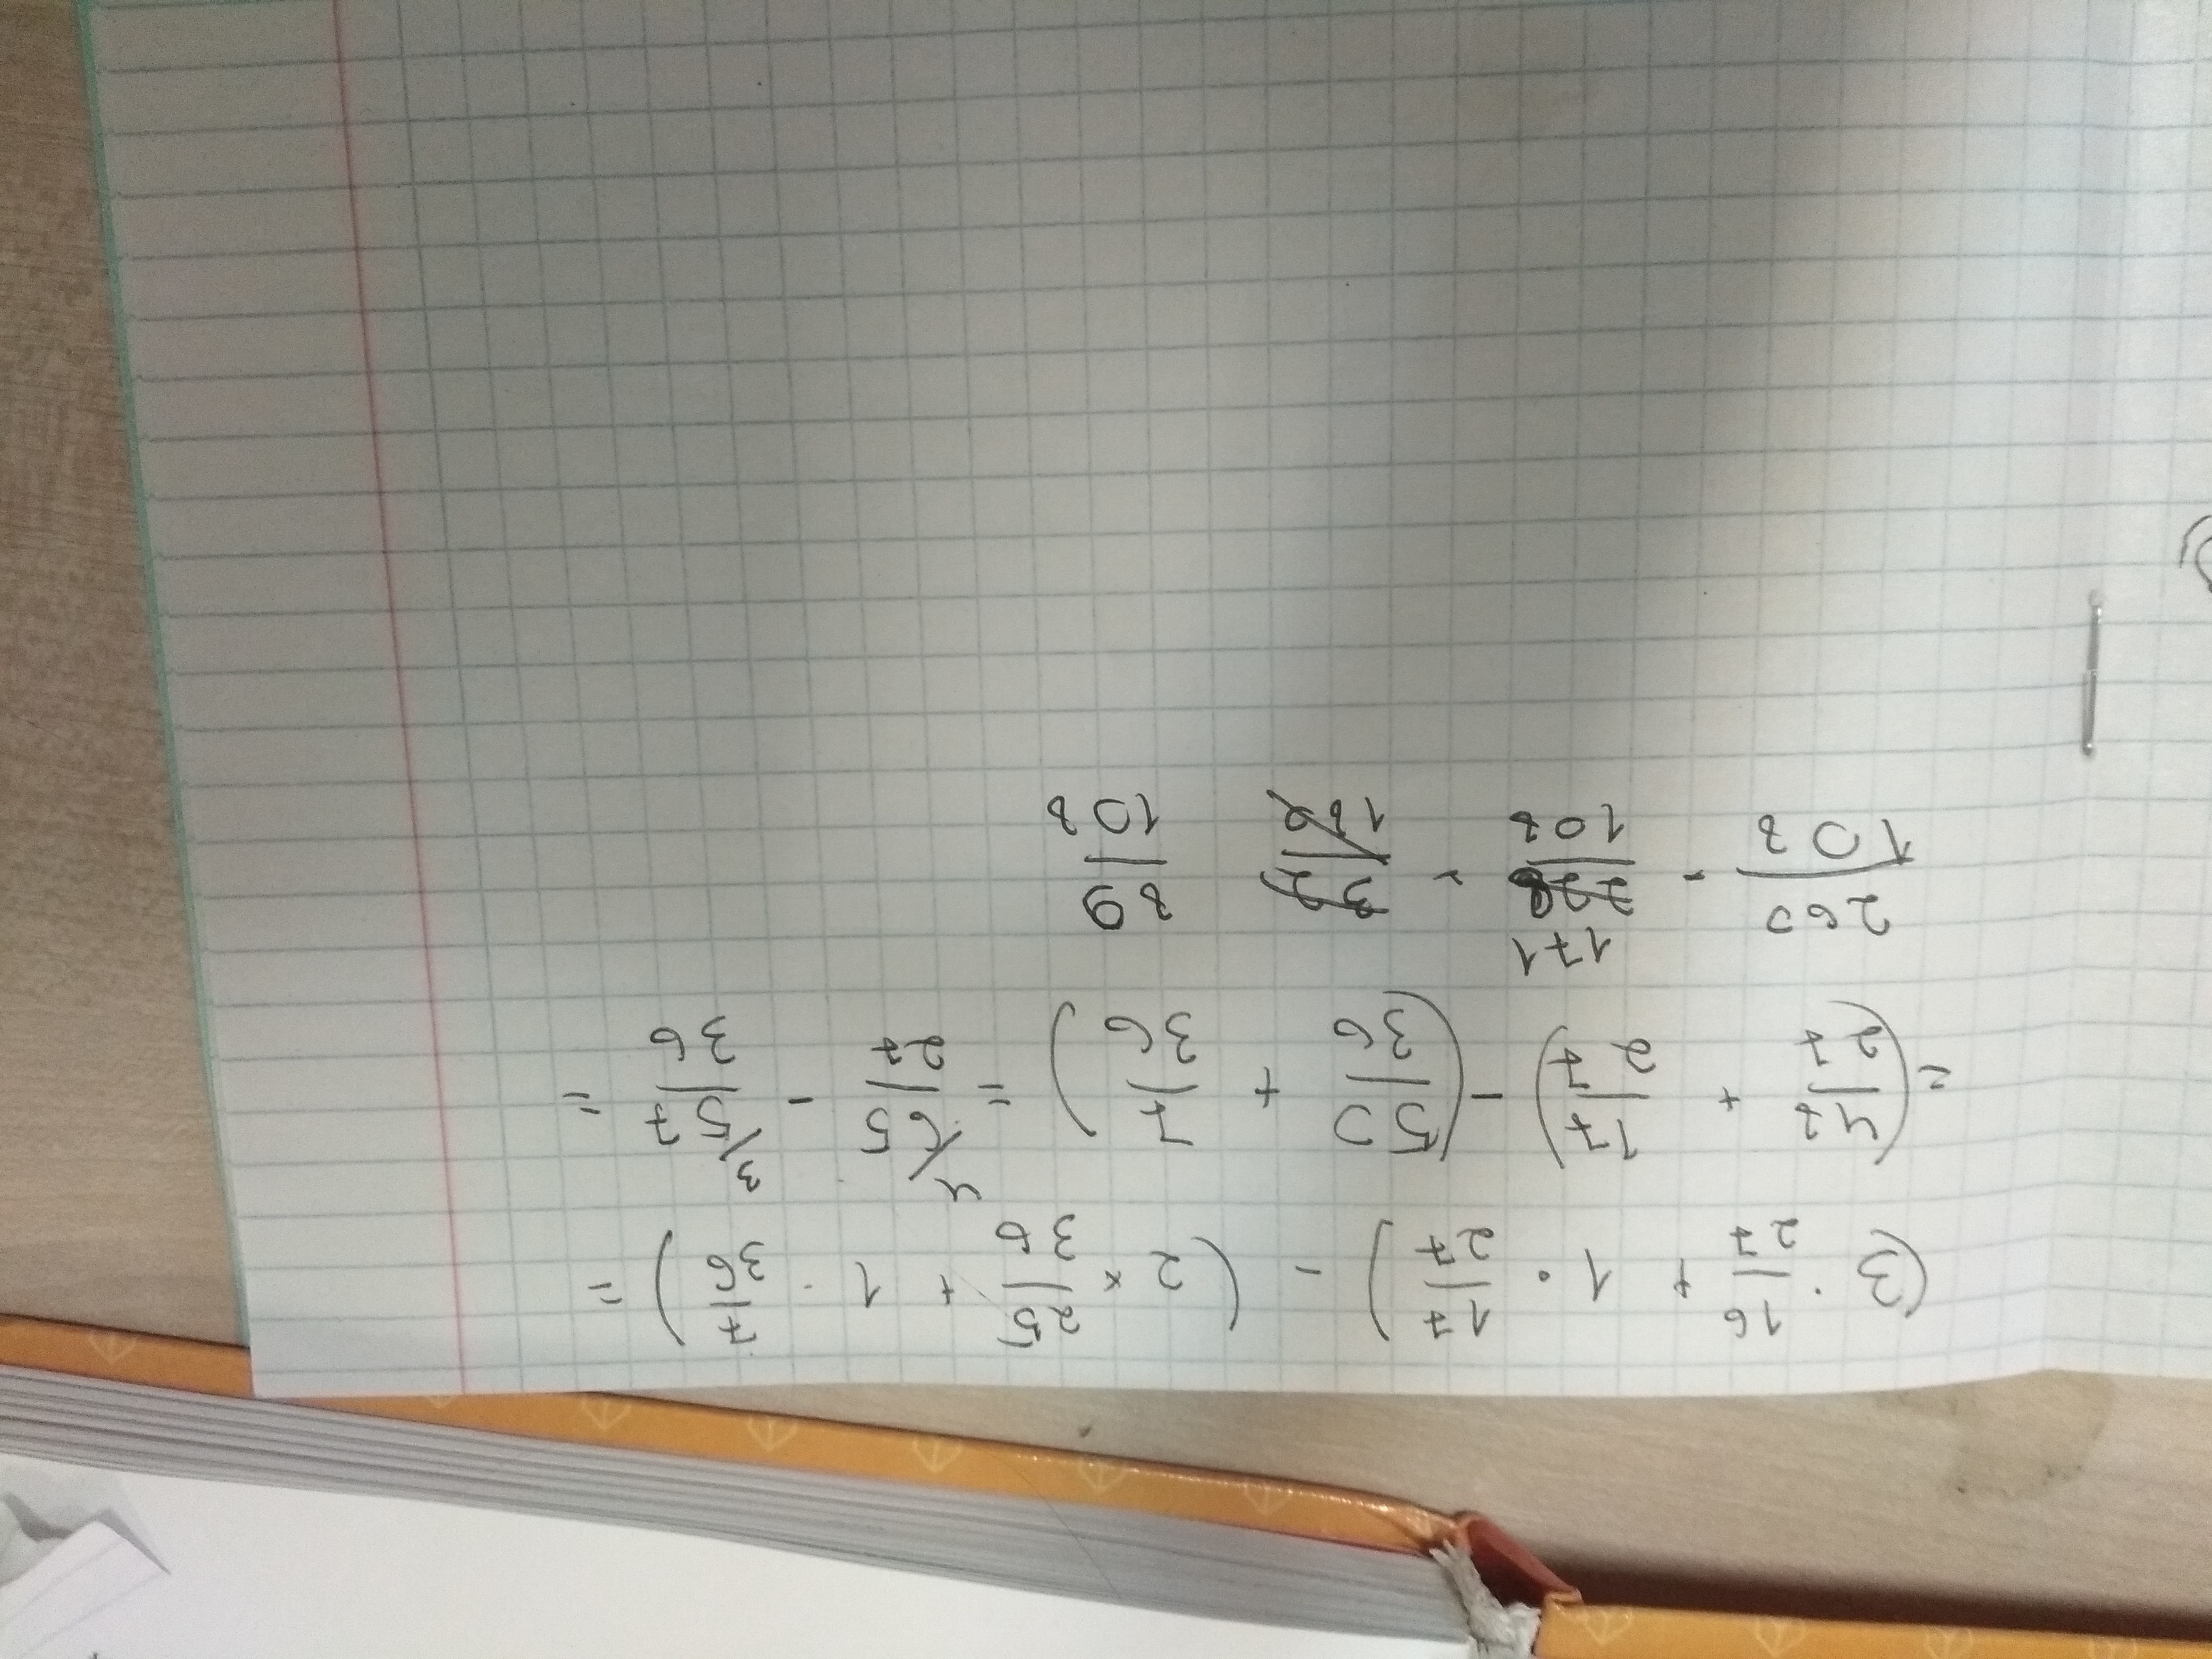 (3 · 16/27 + 1 · 17/27) - (2 × 25/36 + 1 · 7/36) =
= (48/27 + 17/27) - (50/36 + 7/36) = 65/27 \ 4 - 57/36 \ 3 =
260/108 - 171/108 = 89/108